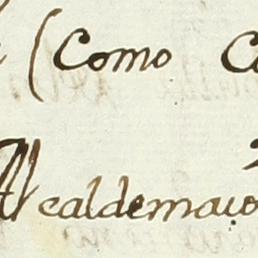 (Como
Alcaldemaio